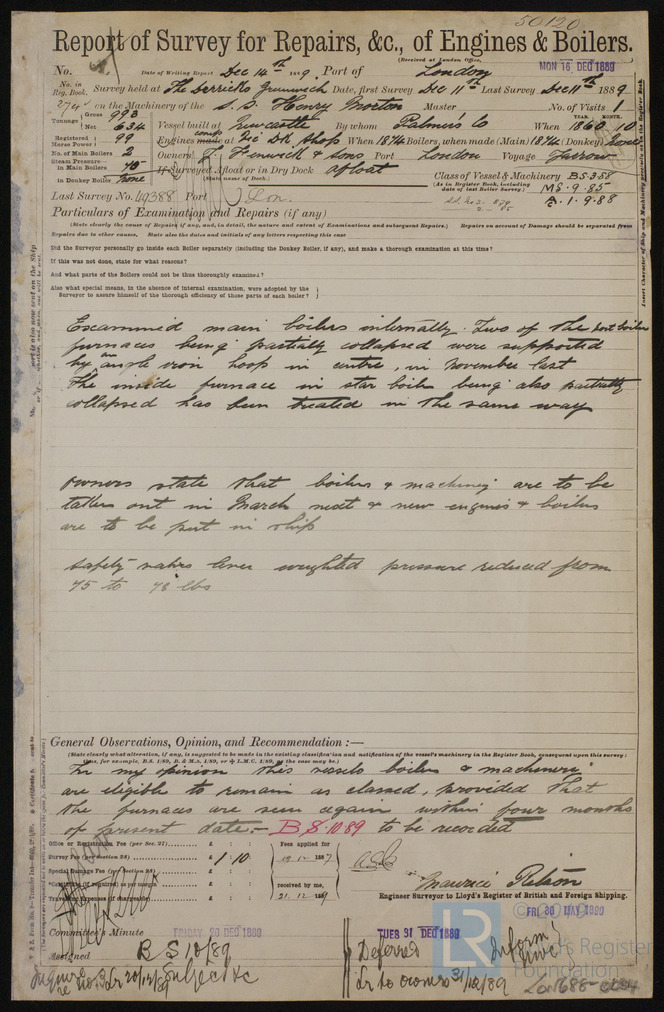 50120
Report of Survey for Repairs, &c., of Engines & Boilers.
(Received at London Office,
MON 16 DEC 1889
No. Date of Writing Report Dec 14th 1889 Port of London
No. in Reg. Book. Survey held at The Derricks Greenwich Date, first Survey Dec 11th Last Survey Dec 11th 1889
274 on the Machinery of the S.S. Henry Morton Master No. of Visits 1
Tonnage Gross 993
Net 634
Vessel built at Newcastle By whom Palmers Co When 1860 10
YEAR. MONTH.
Registered Horse Power 99
Engines made at When 1874 Boilers, when made (Main) 1874 (Donkey) None
No. of Main Boilers 2
Owners Fenwick & Sons Port London Voyage Jarrow
Steam Pressure in Main Boilers 75
If Surveyed Afloat or in Dry Dock afloat
(State name of Dock.)
in Donkey Boiler none
Class of Vessel & Machinery BS 3.58
(As in Register Book, including date of last Boiler Survey.)
MS. 9.85
A.1.9.88
Last Survey No. 49388 Port Lon.
Particulars of Examination and Repairs (if any)
(State clearly the cause of Repairs if any, and, in detail, the nature and extent of Examinations and subsequent Repairs.) Repairs on account of Damage should be separated from
Repairs due to other causes. State also the dates and initials of any letters respecting this case
Did the Surveyor personally go inside each Boiler separately (including the Donkey Boiler, if any), and make a thorough examination at this time?
If this was not done, state for what reasons?
And what parts of the Boilers could not be thus thoroughly examined?
Also what special means, in the absence of internal examination, were adopted by the
Surveyor to assure himself of the thorough efficiency of those parts of each boiler?
Examined main boilers internally. Two of the port boiler
furnaces being partially collapsed were supported
by an angle iron hoop in centre, in November last
The inside furnace in star boiler being also partially
collapsed has been treated in the same way
Owners state that boilers & machinery are to be
taken out in March next & new engines & boilers
are to be put in ship
Safety valves lever weighted pressure reduced from
75 to 70 lbs
General Observations, Opinion, and Recommendation :—
(State clearly what alteration, if any, is suggested to be made in the existing classification and notification of the vessel's machinery in the Register Book, consequent upon this survey;
thus, for example, B.S. 1/89, B. & M.S. 1/89, or L.M.C. 1/89, as the case may be.)
In my opinion this vessels boilers & machinery
are eligible to remain as classed, provided that
the furnaces are seen again within four months
of present date.- B.S. 10 89 to be recorded
Office or Registration Fee (per Sec. 27)
Survey Fee (per Section 28) £ 1.10
Special Damage Fee (per Section 28)
Certificate (if required) as per margin
Travelling Expenses (if chargeable)
Fees applied for
received by me,
21.12.1889
Maurice Ritson
Engineer Surveyor to Lloyd's Register of British and Foreign Shipping.
FRI 30 MAY 1890
Committee's Minute
FRIDAY 20 DEC 1889
TUES 31 DEC 1889
Assigned B S 10/89
Subject &c
Deferred
Lr to owners 31/12/89
LR
Lloyd's Register
Foundation
LON688-0234